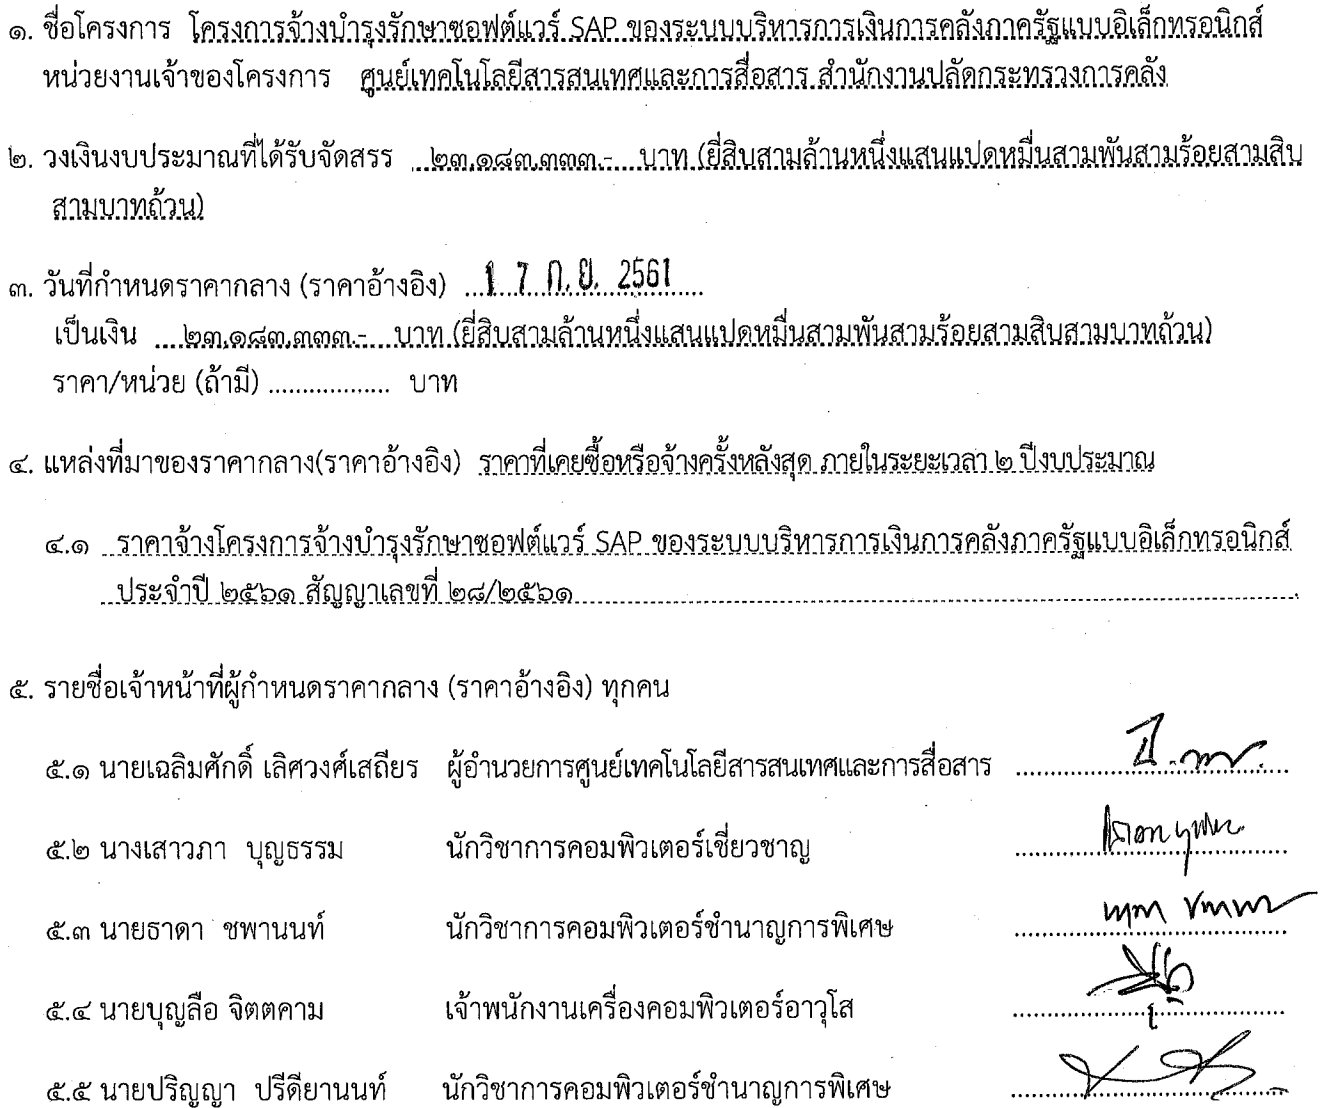 ๑. ชื่อโครงการ โครงการจ้างบำรุงรักษาซอฟต์แวร์ SAP ของระบบบริหารการเงินการคลังภาครัฐแบบอิเล็กทรอนิกส์
หน่วยงานเจ้าของโครงการ ศูนย์เทคโนโลยีสารสนเทศและการสื่อสาร สำนักงานปลัดกระทรวงการคลัง
๒. วงเงินงบประมาณที่ได้รับจัดสรร ...๒๓,๑๘๓,๓๓๓.-....บาท (ยี่สิบสามล้านหนึ่งแสนแปดหมื่นสามพันสามร้อยสามสิบ
สามบาทถ้วน)
๓. วันที่กำหนดราคากลาง (ราคาอ้างอิง) ...1 7 ก.ย. 2561......
เป็นเงิน ....๒๓,๑๘๓,๓๓๓.-....บาท (ยี่สิบสามล้านหนึ่งแสนแปดหมื่นสามพันสามร้อยสามสิบสามบาทถ้วน)
ราคา/หน่วย (ถ้ามี) .................. บาท
๔. แหล่งที่มาของราคากลาง(ราคาอ้างอิง) ราคาที่เคยซื้อหรือจ้างครั้งหลังสุด ภายในระยะเวลา ๒ ปีงบประมาณ
๔.๑ ราคาจ้างโครงการจ้างบำรุงรักษาซอฟต์แวร์ SAP ของระบบบริหารการเงินการคลังภาครัฐแบบอิเล็กทรอนิกส์
ประจำปี ๒๕๖๑ สัญญาเลขที่ ๒๘/๒๕๖๑
๕. รายชื่อเจ้าหน้าที่ผู้กำหนดราคากลาง (ราคาอ้างอิง) ทุกคน
๕.๑ นายเฉลิมศักดิ์ เลิศวงศ์เสถียร ผู้อำนวยการศูนย์เทคโนโลยีสารสนเทศและการสื่อสาร
๕.๒ นางเสาวภา บุญธรรม นักวิชาการคอมพิวเตอร์เชี่ยวชาญ
๕.๓ นายธาดา ชพานนท์ นักวิชาการคอมพิวเตอร์ชำนาญการพิเศษ
๕.๔ นายบุญลือ จิตตคาม เจ้าพนักงานเครื่องคอมพิวเตอร์อาวุโส
๕.๕ นายปริญญา ปรีดียานนท์ นักวิชาการคอมพิวเตอร์ชำนาญการพิเศษ